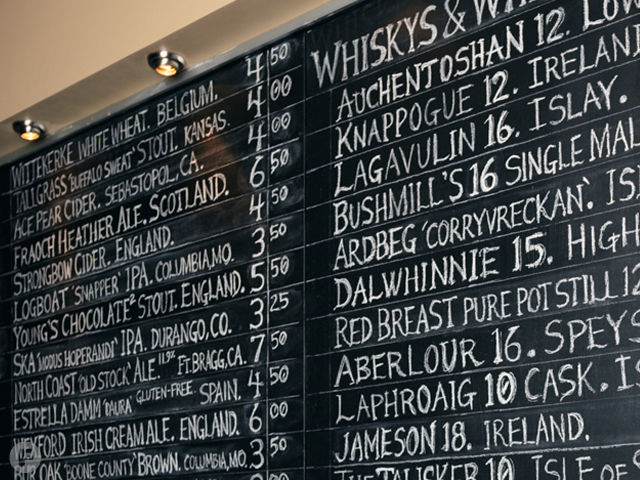 WITTEKERKE WHITE WHEAT. BELGIUM. 4 50
TALLGRASS 'BUFFALO SWEAT' STOUT. KANSAS. 4 00
ACE PEAR CIDER. SEBASTOPOL, CA. 4 00
FRAOCH HEATHER ALE. SCOTLAND. 6 50
STRONGBOW CIDER. ENGLAND. 4 50
LOGBOAT 'SNAPPER' IPA. COLUMBIA, MO. 3 50
YOUNG'S CHOCOLATE² STOUT. ENGLAND. 5 50
SKA 'MODUS HOPERANDI' IPA. DURANGO, CO. 3 25
NORTH COAST 'OLD STOCK' ALE. 11.9% FT. BRAGG, CA. 7 50
ESTRELLA DAMM 'DAURA' GLUTEN-FREE. SPAIN. 4 50
WEXFORD IRISH CREAM ALE. ENGLAND. 6 00
BUR OAK 'BOONE COUNTY' BROWN. COLUMBIA, MO. 3 50
WHISKYS & WH
AUCHENTOSHAN 12. LOW
KNAPPOGUE 12. IRELAN
LAGAVULIN 16. ISLAY.
BUSHMILL'S 16 SINGLE MAL
ARDBEG 'CORRYVRECKAN'. IS
DALWHINNIE 15. HIGH
RED BREAST PURE POT STILL 12
ABERLOUR 16. SPEYS
LAPHROAIG 10 CASK. IS
JAMESON 18. IRELAND.
THE TALISKER 10 ISLE OF S